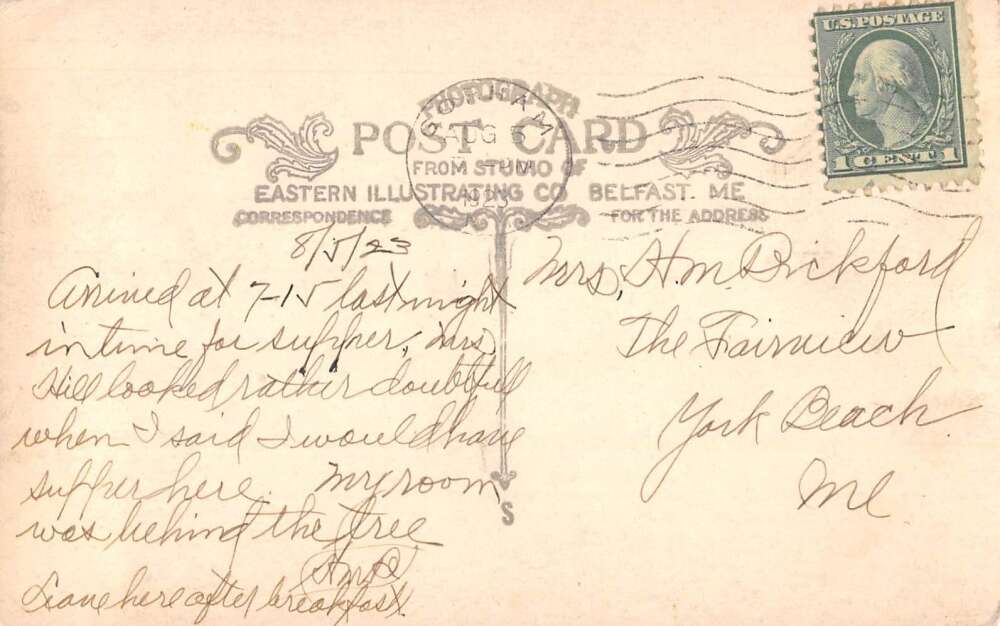 U.S. POSTAGE
1 CENT 1
GORHAM
AUG 6
PM
1923
PHOTOGRAPH
POST CARD
FROM STUDIO OF
EASTERN ILLUSTRATING CO BELFAST. ME
CORRESPONDENCE
FOR THE ADDRESS
8/5/23
Arrived at 7-15 last night
in time for supper, Mrs
Hill looked rather doubtfull
when I said I would have
supper here. My room
was behind the tree
H.M.P.
Leave here after breakfast.
Mrs. H.M. Pickford
The Fairview
York Beach
Me
S